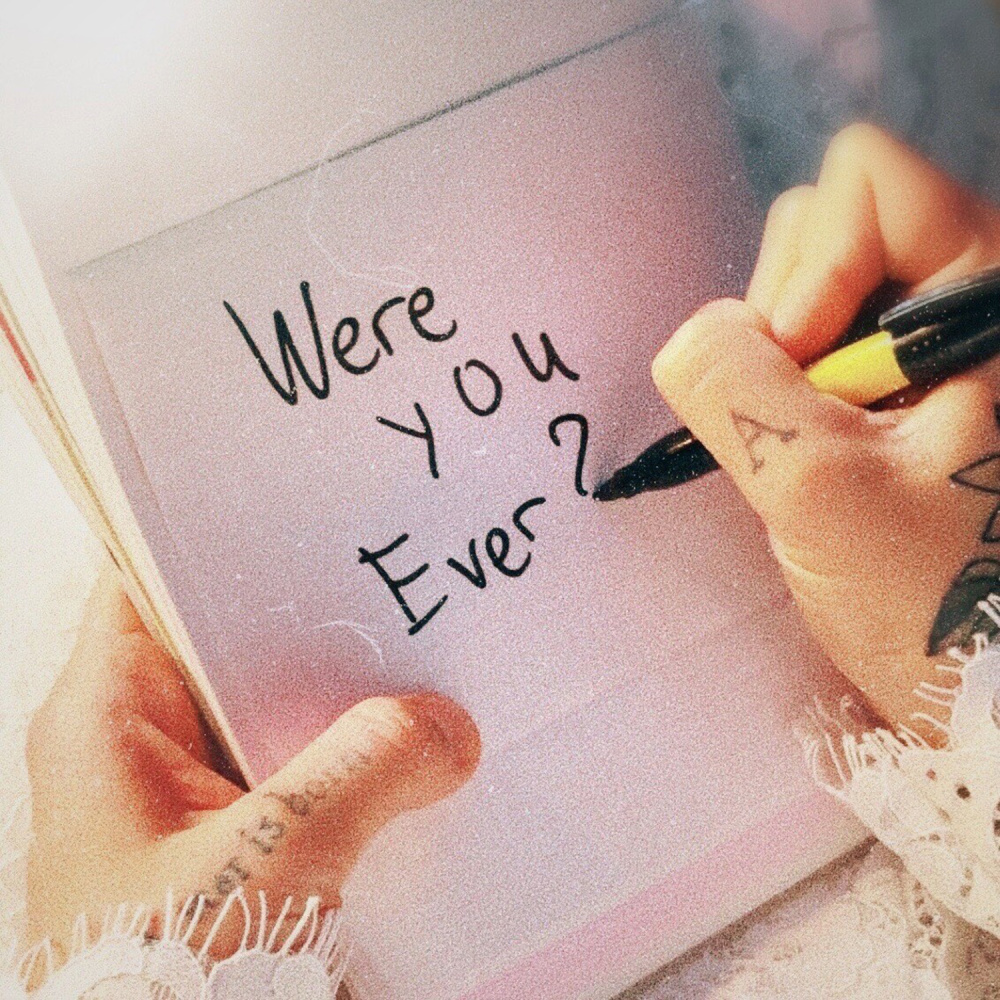 Were
you
Ever?
A
is